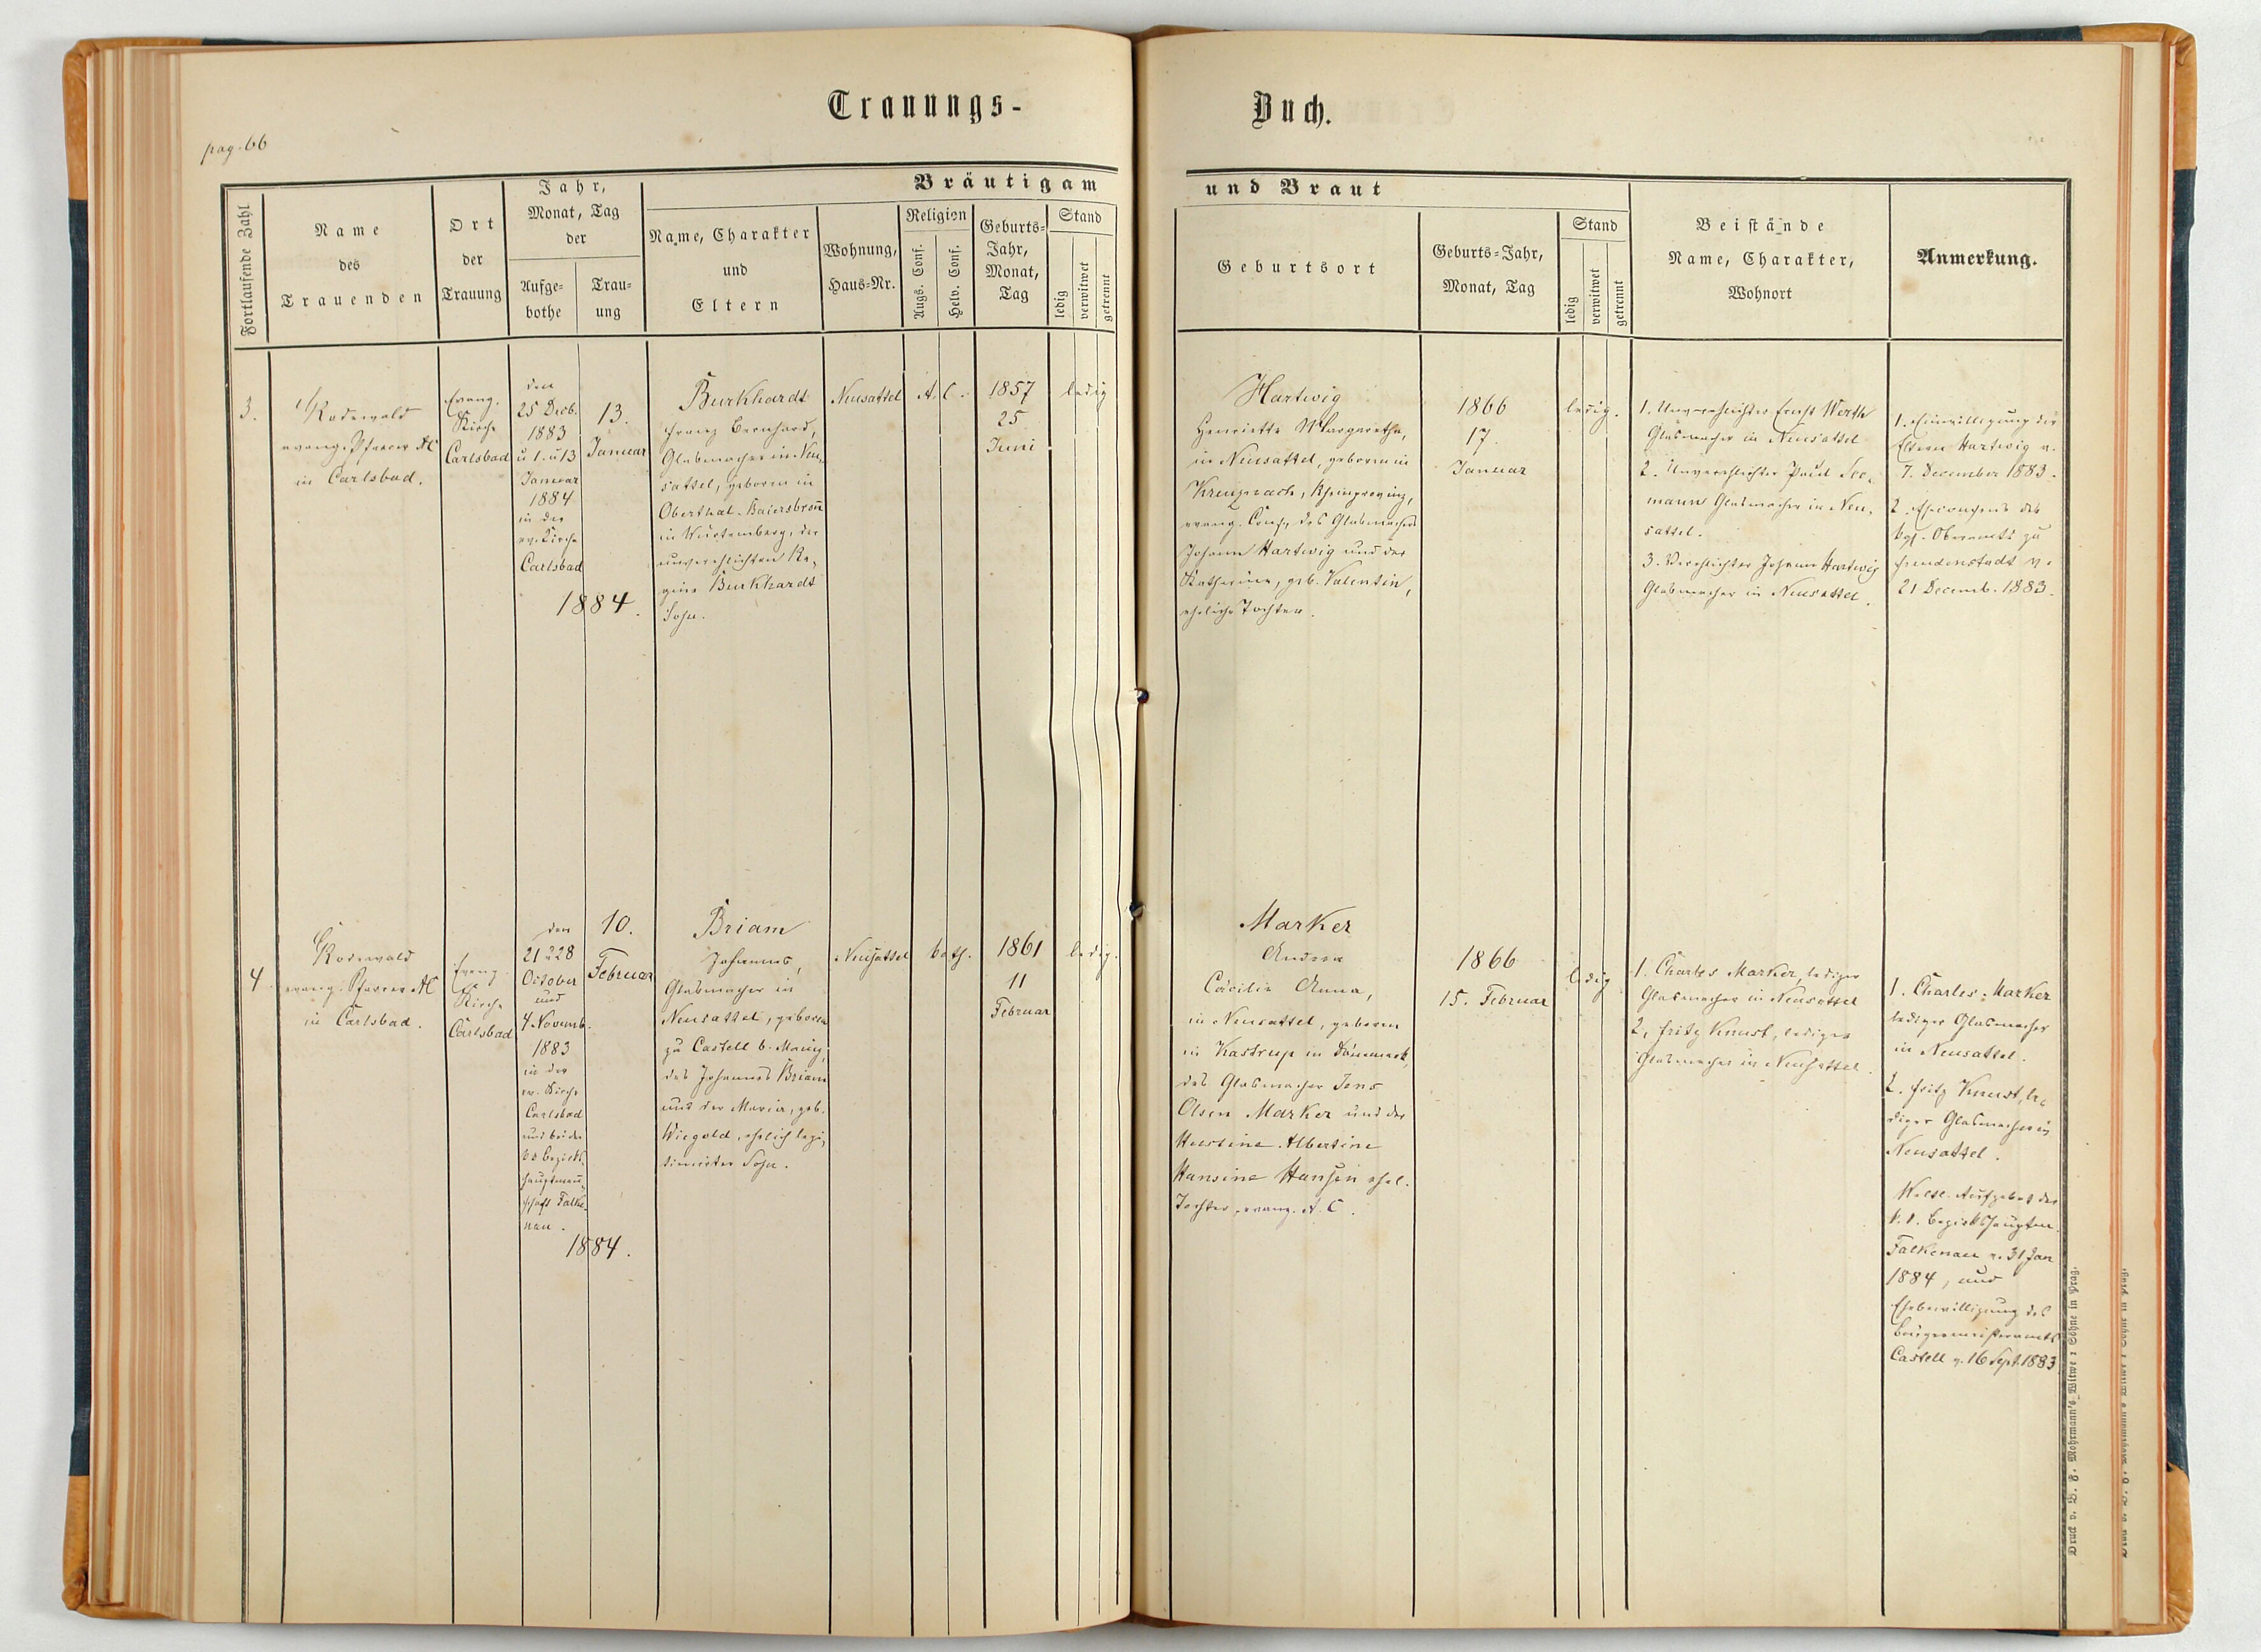 Trauungs-
Buch.
pag. 66
Fortlaufende Zahl
Name
des
Trauenden
Ort
der
Trauung
Jahr,
Monat, Tag
der
Aufge-
bothe
Trau-
ung
Bräutigam
Name, Charakter
und
Eltern
Wohnung,
Haus-Nr.
Religion
Augs. Conf.
Helv. Conf.
Geburts-
Jahr,
Monat,
Tag
Stand
ledig
verwitwet
getrennt
und Braut
Geburtsort
Geburts-Jahr,
Monat, Tag
Stand
ledig
verwitwet
getrennt
Beistände
Name, Charakter,
Wohnort
Anmerkung.
3.
Rodewald
evang. Pfarrer AC
in Carlsbad.
Evang.
Kirche
Carlsbad
den
25 Decb.
1883
u 1. u 13
Januar
1884
in der
ev. Kirche
Carlsbad
13.
Januar
1884.
Burkhardt
Franz Bernhard,
Glasmacher in Neu-
sattel, geboren in
Oberthal-Baiersbronn
in Würtemberg, der
unverehlichten Re-
gine Burkhardt
Sohn.
Neusattel
A. C.
1857
25
Juni
ledig
Hartwig
Henriette Margarethe,
in Neusattel, geboren in
Kreuznach, Rheinprovinz,
evang. Conf., des Glasmachers
Johann Hartwig und der
Katharina, geb. Valentin,
eheliche Tochter.
1866
17.
Januar
ledig.
1. Unverehlichter Ernst Werth
Glasmacher in Neusattel
2. Unverehlichter Paul See-
mann Glasmacher in Neu-
sattel.
3. Verehlichter Johann Hartwig
Glasmacher in Neusattel.
1. Einwilligung der
Eltern Hartwig v.
7. December 1883.
2. Eheconsens des
kgl. Oberamts zu
Freudenstadt v.
21 Decemb. 1883.
4
Rodewald
evang. Pfarrer AC
in Carlsbad.
Evang.
Kirche
Carlsbad
den
21 u 28
October
und
4 Novemb.
1883
in der
ev. Kirche
Carlsbad
und bei der
kk Bezirks-
hauptmann-
schaft Falke-
nau.
10.
Februar
1884.
Briam
Johannes,
Glasmacher in
Neusattel, geboren
zu Castell b. Mainz,
des Johannes Briam
und der Maria, geb.
Wiegold, ehelich legi-
timirter Sohn.
Neusattel
kath.
1861
11
Februar
ledig.
Marker
Andrea
Cäcilie Anna,
in Neusattel, geboren
in Kastrup in Dänemark,
des Glasmacher Jens
Olsen Marker und der
Albertine
Hansine Hansen ehel.
Tochter, evang. A. C.
1866
15. Februar
ledig
1. Charles Marker, lediger
Glasmacher in Neusattel
2. Fritz Knust, lediger
Glasmacher in Neusattel.
1. Charles Marker
lediger Glasmacher
in Neusattel.
2. Fritz Knust, le-
diger Glasmacher in
Neusattel.
Aufgebot der
k. k. Bezirkshauptm.
Falkenau v. 31 Jan
1884, und
Ehebewilligung des
Bürgermeisteramts
Castell v. 16 Sept. 1883
Druck v. B. F. Mohrmann's Witwe & Söhne in Prag.